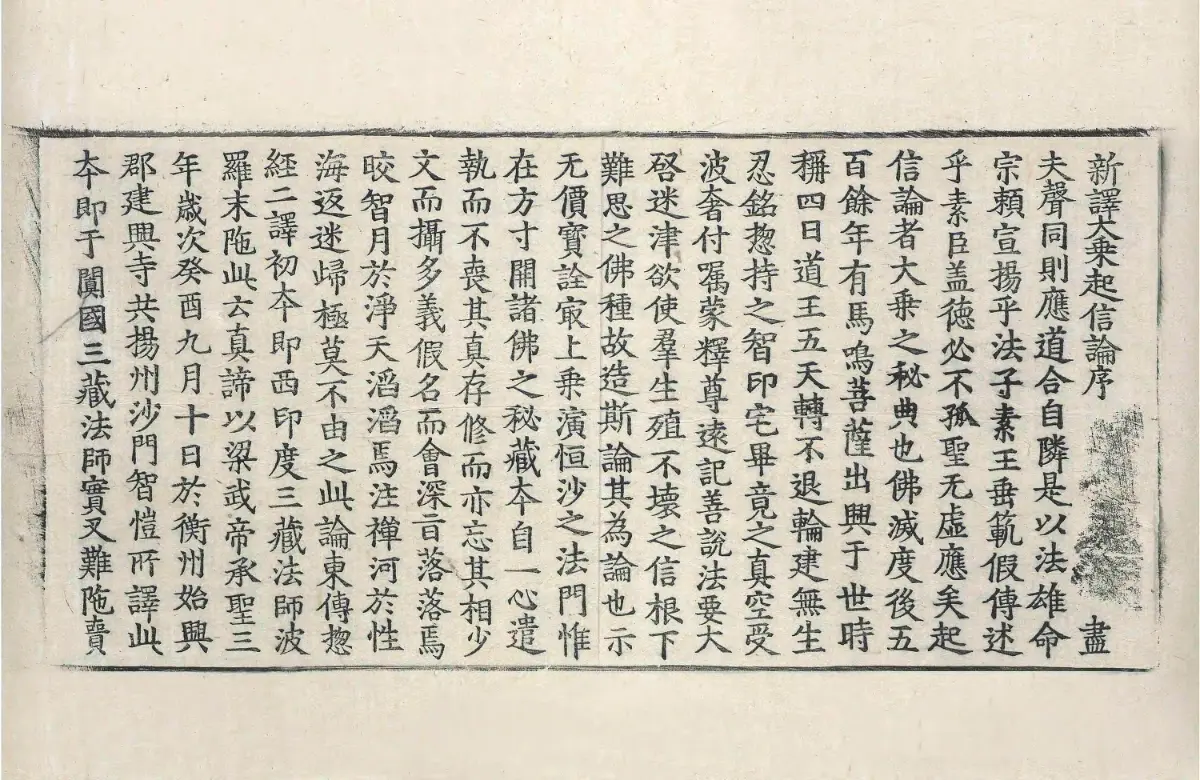 新譯大乗起信論序　盡
夫聲同則應道合自隣是以法雄命
宗頼宣揚乎法子素王垂範假傳述
乎素臣盖徳必不孤聖无虛應矣起
信論者大乗之秘典也佛滅度後五
百餘年有馬鳴菩薩出興于世時
稱四日道王五天轉不退輪建無生
忍銘揔持之智印宅畢竟之真空受
波奢付囑蒙釋尊遠記善說法要大
啓迷津欲使羣生殖不壞之信根下
難思之佛種故造斯論其為論也示
无價寶詮冣上乗演恒沙之法門惟
在方寸開諸佛之秘藏夲自一心遣
執而不喪其真存修而亦忘其相少
文而攝多義假名而會深旨落落焉
晈智月於淨天滔滔焉注禪河於性
海返迷歸極莫不由之此論東傳惣
經二譯初夲即西印度三藏法師波
羅末陁此云真諦以梁武帝承聖三
年歲次癸酉九月十日於衡州始興
郡建興寺共揚州沙門智愷所譯此
夲即于闐國三藏法師實叉難陁賷